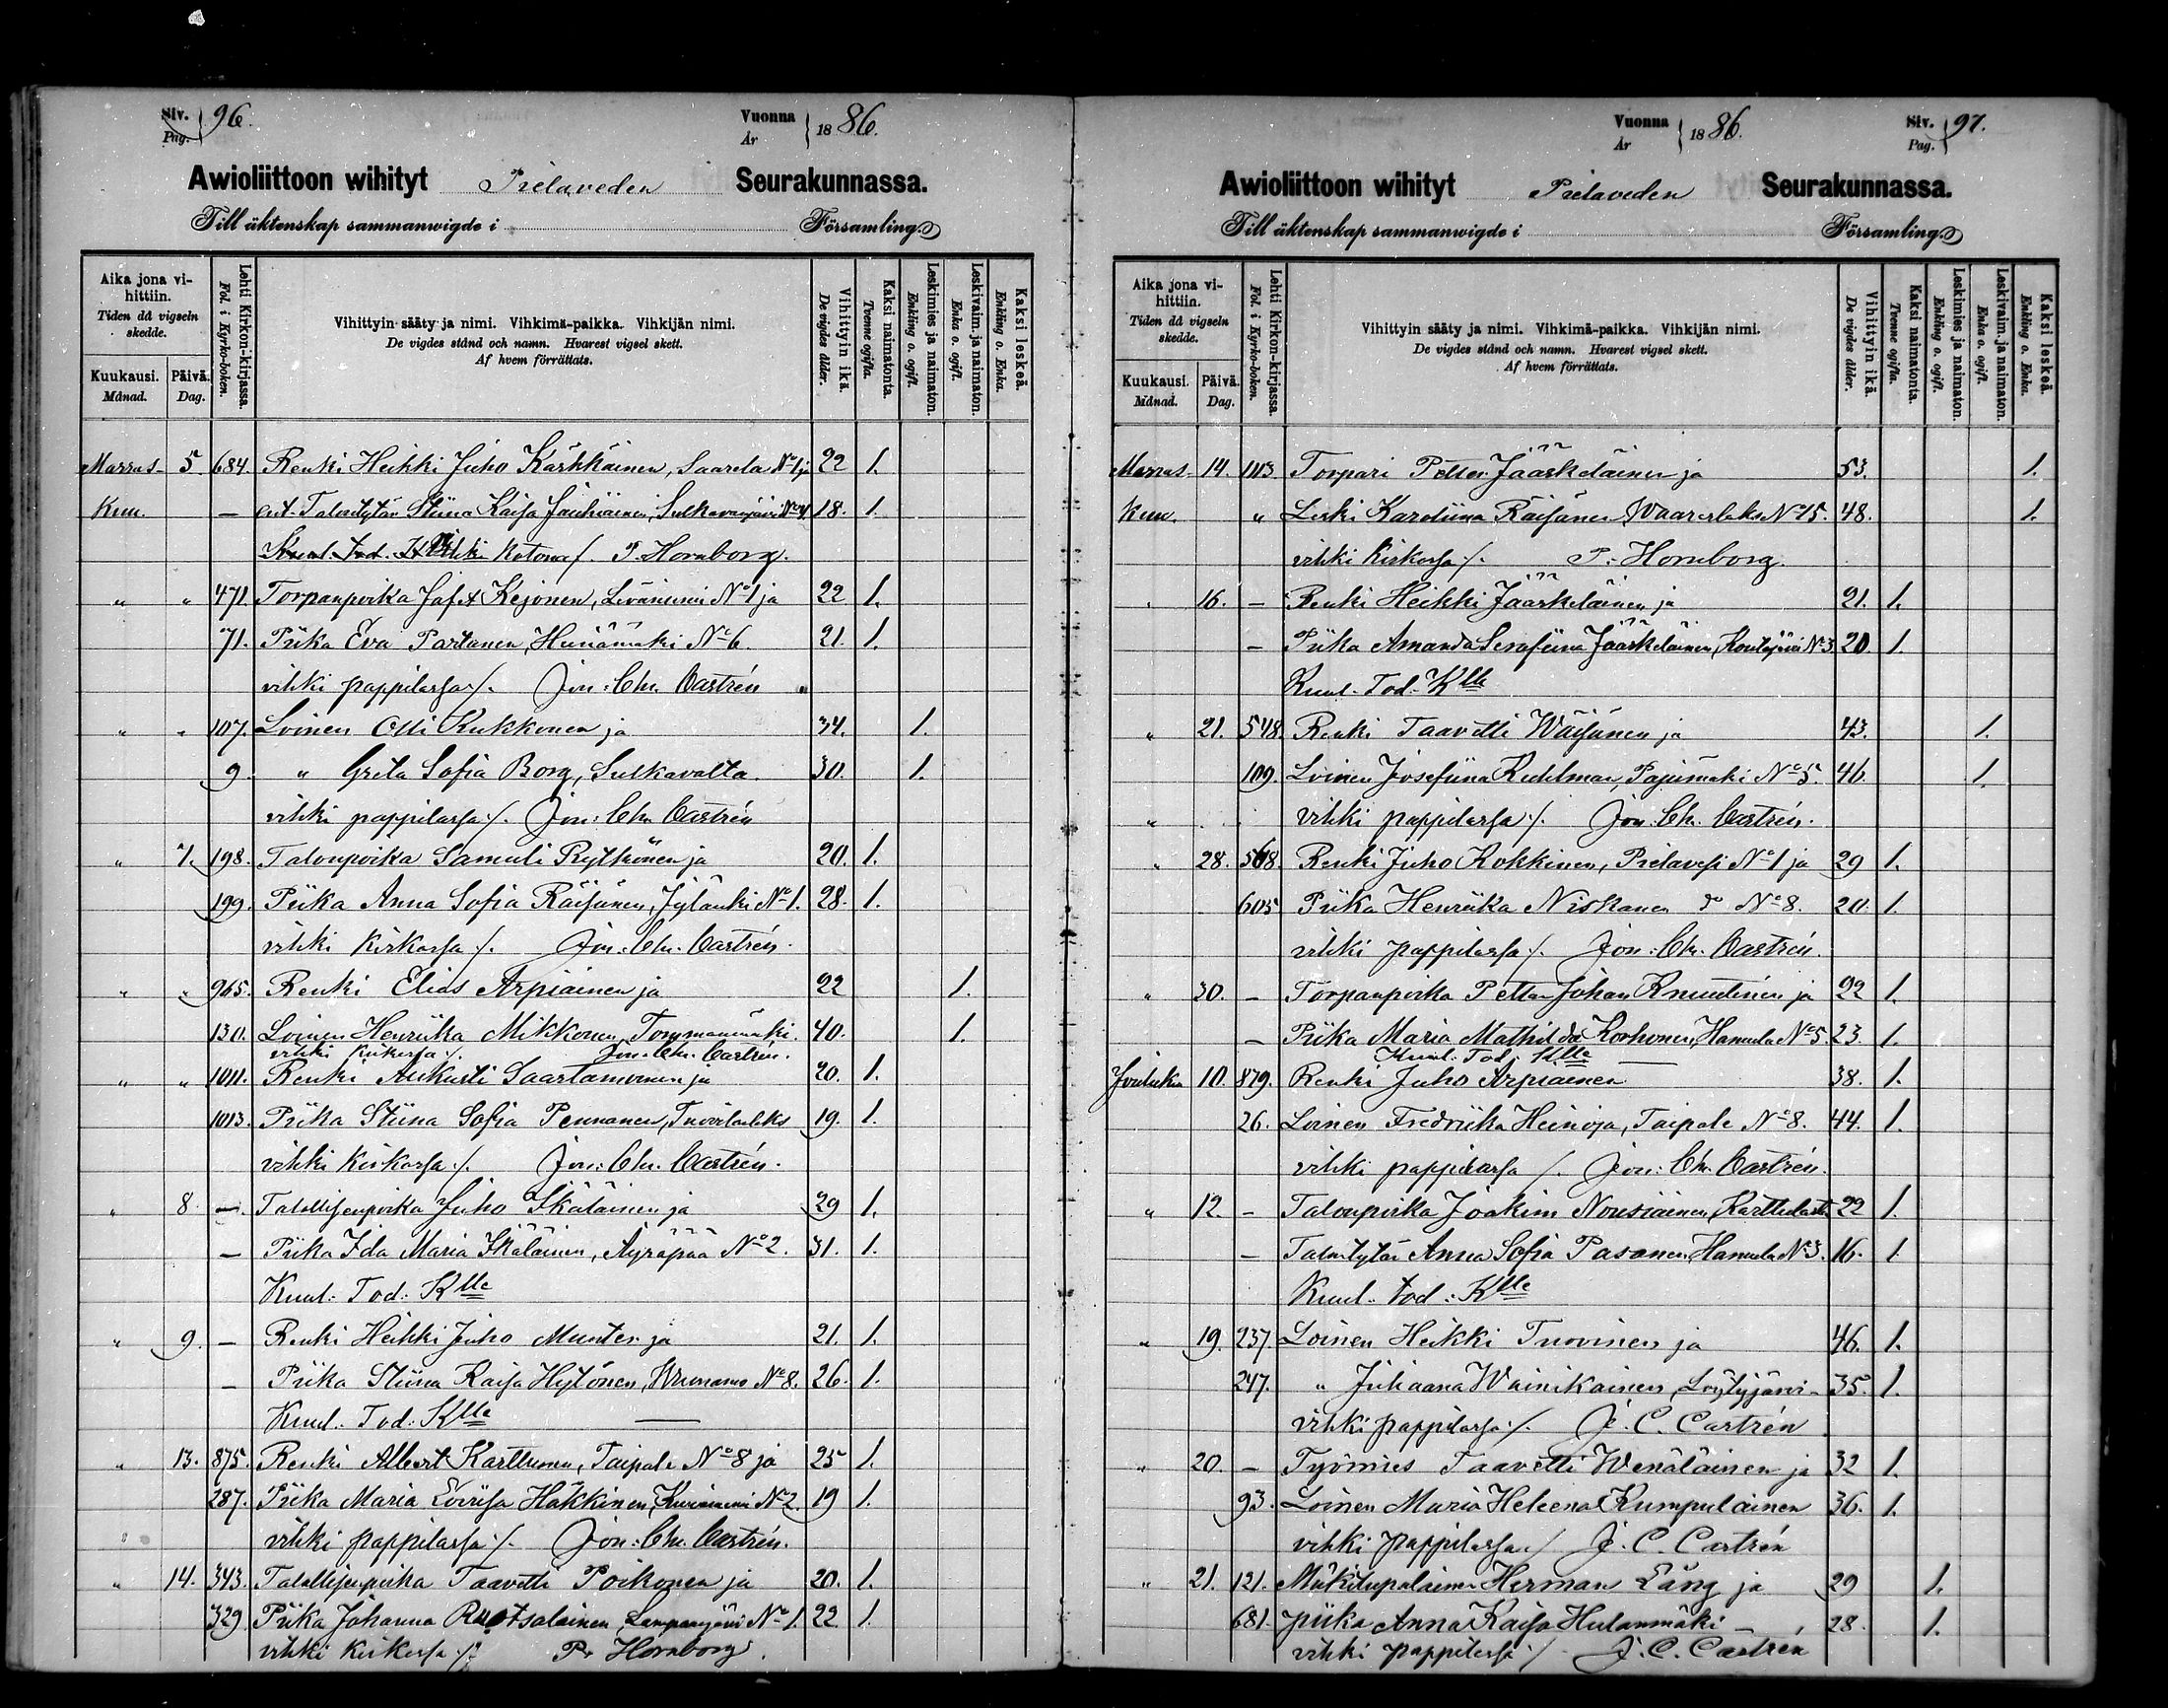 Siv. Pag. 96.
Vuonna År 1886.
Awioliittoon wihityt Pielaveden Seurakunnassa.
Till äktenskap sammanwigde i Församling.
Aika jona vihittiin. Tiden då vigseln skedde.
Kuukausi. Månad. Päivä. Dag.
Lehti Kirkon-kirjassa. Fol. i Kyrko-boken.
Vihittyin sääty ja nimi. Vihkimä-paikka. Vihkijän nimi.
De vigdes stånd och namn. Hvarest vigsel skett.
Af hvem förrättats.
Vihittyin ikä. De vigdes ålder.
Kaksi naimatonta. Tvenne ogifta.
Leskimies ja naimaton. Enkling o. ogift.
Leskivaim. ja naimaton. Enka o. ogift.
Kaksi leskeä. Enkling o. Enka.
Marras- 5. 684. Renki Heikki Juho Kärkkäinen, Saarela No 1 ja 22 1.
Kuu. — ent. Talontytär Stiina Kaisa Jauhiainen, Sulkavanjärvi No 4. 18. 1.
Kuul. tod. vihki kotona /. P. Hornborg.
" " 471. Torpanpoika Jafet Kejonen, Liväniemi No 1 ja 22 1.
71. Piika Eva Partanen, Heinämäki No 6. 21. 1.
vihki pappilassa /. Jon: Chr. Castrén
" " 107. Loinen Olli Kukkonen ja 34. 1.
9. " Greta Sofia Borg, Sulkavalta. 30. 1.
vihki pappilassa /. Jon: Chr. Castrén
" 7. 198. Talonpoika Samuli Rytkönen ja 20. 1.
199. Piika Anna Sofia Räisänen, Jylänki No 1. 28. 1.
vihki Kirkossa /. Jon: Chr. Castrén.
" " 965. Renki Elias Arpiainen ja 22 1.
130. Loinen Henriika Mikkonen, Tommanmäki. 40. 1.
vihki kirkossa /. Jon: Chr. Castrén.
" " 1011. Renki Aukusti Saastamoinen ja 20. 1.
1013. Piika Stiina Sofia Pennanen, Tuovilanlaks 19. 1.
vihki kirkossa /. Jon: Chr. Castrén.
" 8. — Talollisenpoika Juho Ikäläinen ja 29 1.
— Piika Ida Maria Ikäläinen, Äyräpää No 2. 31. 1.
Kuul. Tod. Klle
" 9. — Renki Heikki Juho Munter ja 21. 1.
— Piika Stiina Kaisa Hytönen, No 8. 26. 1.
Kuul. Tod. Klle —
" 13. 875. Renki Albert Karttunen, Taipale No 8 ja 25 1.
287. Piika Maria Loviisa Häkkinen, Kuivaniemi No 2. 19 1.
" vihki pappilassa /. Jon: Chr. Castrén.
" 14. 343. Talollisenpoika Taavetti Poikonen ja 20. 1.
329 Piika Johanna Ruotsalainen, Lampaanjärvi No 1. 22 1.
vihki kirkossa /: Pr Hornborg.
Vuonna År 1886.
Siv. Pag. 97.
Awioliittoon wihityt Pielaveden Seurakunnassa.
Till äktenskap sammanwigde i Församling.
Aika jona vihittiin. Tiden då vigseln skedde.
Kuukausi. Månad. Päivä. Dag.
Lehti Kirkon-kirjassa. Fol. i Kyrko-boken.
Vihittyin sääty ja nimi. Vihkimä-paikka. Vihkijän nimi.
De vigdes stånd och namn. Hvarest vigsel skett.
Af hvem förrättats.
Vihittyin ikä. De vigdes ålder.
Kaksi naimatonta. Tvenne ogifta.
Leskimies ja naimaton. Enkling o. ogift.
Leskivaim. ja naimaton. Enka o. ogift.
Kaksi leskeä. Enkling o. Enka.
Marras. 14. 1113. Torpari Petter Jääskeläinen ja 53. 1.
Kuu. " Leski Karoliina Räisänen, Waaraslaks No 15. 48. 1.
vihki Kirkossa /. P. Hornborg.
" 16. — Renki Heikki Jääskeläinen ja 21. 1.
— Piika Amanda Serafiina Jääskeläinen, Koutajärvi No 3 20. 1.
Kuul. Tod. Klle
" 21. 548. Renki Taavetti Wäisänen ja 43. 1.
109. Loinen Josefiina Rudelman, Pajumäki No 5. 46. 1.
" vihki pappilassa /. Jon: Chr. Castrén.
" 28. 568. Renki Juho Kokkinen, Pielavesi No 1 ja 29 1.
605 Piika Henriika Niskanen do No 8. 20. 1.
vihki pappilassa /. Jon: Chr. Castrén.
" 30. — Torpanpoika Petter Johan Knuutinen ja 22 1.
— Piika Maria Mathilda Korhonen, Hamula No 5. 23. 1.
Kuul. Tod. Klle —
Jouluku 10. 879. Renki Juho Arpiainen 38. 1.
26. Loinen Fredriika Heinoja, Taipale No 8. 44. 1.
vihki pappilassa /. Jon: Chr. Castrén.
" 12. — Talonpoika Joakim Nousiainen, Karttulasta 22 1.
— Talontytär Anna Sofia Pasanen, Hamula No 3. 16. 1
Kuul. tod. Klle
" 19. 237. Loinen Heikki Tuovinen ja 46. 1.
247. " Juliaana Wainikainen, Löytyjärvi- 35. 1.
vihki pappilassa /. J. C. Castrén
" 20. — Työmies Taavetti Wenäläinen ja 32 1.
93. Loinen Maria Heleena Kumpulainen 36. 1.
vihki pappilassa / J. C. Castrén
" 21. 121. Mäkitupalainen Herman Läng ja 29 1.
681. piika Anna Kaisa Hulanmäki — 28. 1.
vihki pappilassa / J. C. Castrén